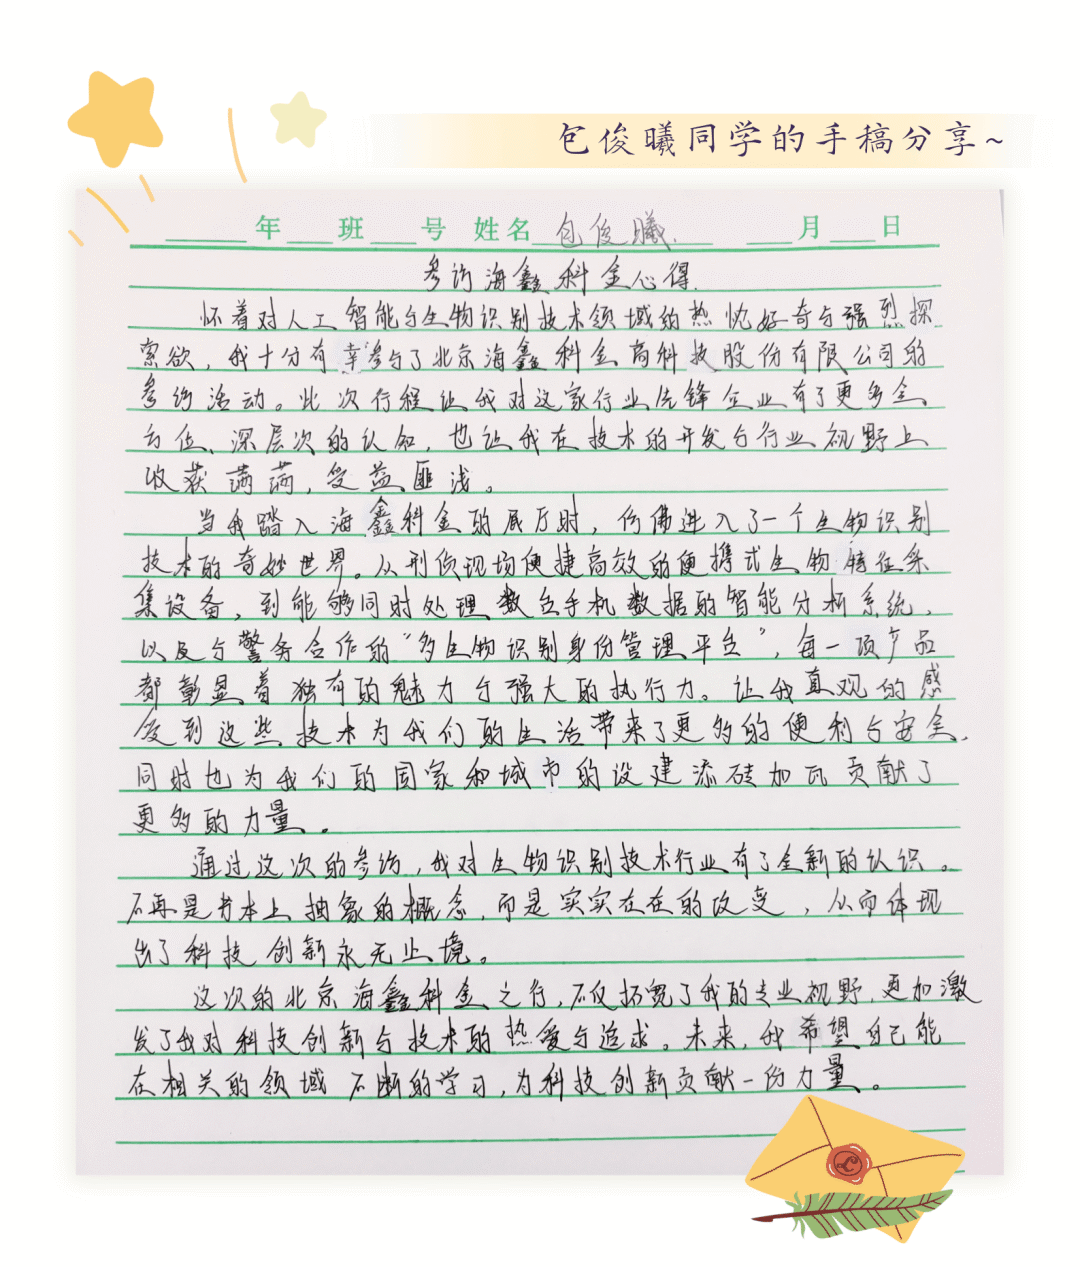 包俊曦同学的手稿分享~
年 班 号 姓名 包俊曦 月 日
参访海鑫科金心得
怀着对人工智能与生物识别技术领域的热忱好奇与强烈探
索欲，我十分有幸参与了北京海鑫科金高科技股份有限公司的
参访活动。此次行程让我对这家行业先锋企业有了更多全
方位、深层次的认知，也让我在技术的开发与行业视野上
收获满满，受益匪浅。
当我踏入海鑫科金的展厅时，仿佛进入了一个生物识别
技术的奇妙世界。从刑侦现场便捷高效的便携式生物特征采
集设备，到能够同时处理数台手机数据的智能分析系统，
以及与警务合作的“多生物识别身份管理平台”，每一项产品
都彰显着独有的魅力与强大的执行力。让我直观的感
受到这些技术为我们的生活带来了更多的便利与安全，
同时也为我们的国家和城市的设建添砖加瓦贡献了
更多的力量。
通过这次的参访，我对生物识别技术行业有了全新的认识。
不再是书本上抽象的概念，而是实实在在的改变，从而体现
出了科技创新永无止境。
这次的北京海鑫科金之行，不仅拓宽了我的专业视野，更加激
发了我对科技创新与技术的热爱与追求。未来，我希望自己能
在相关的领域不断的学习，为科技创新贡献一份力量。